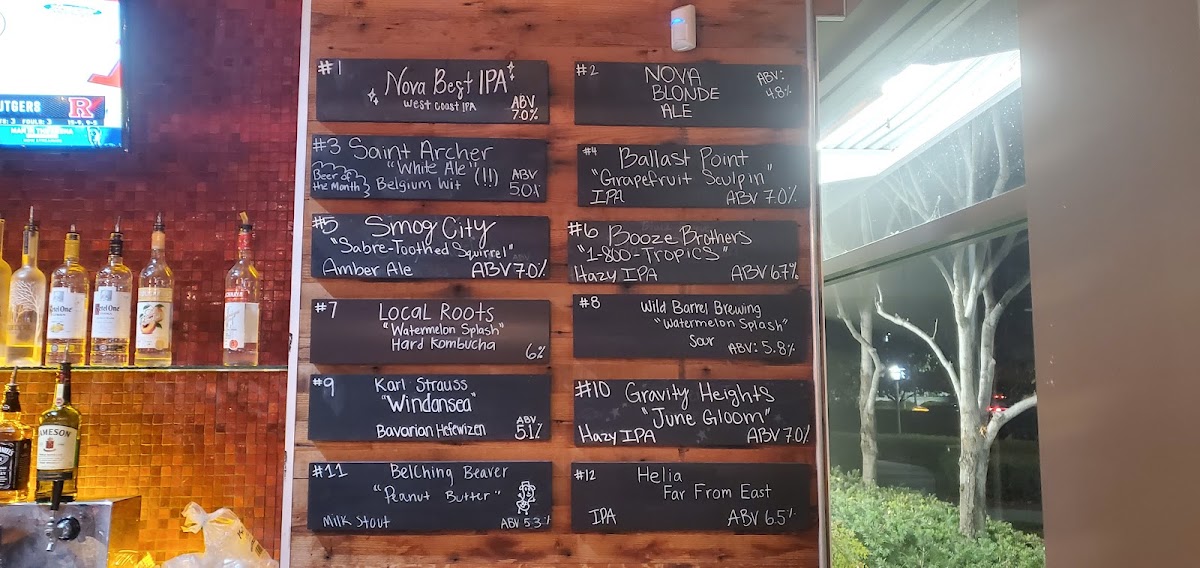 #1
Nova Best IPA
West Coast IPA
ABV
7.0%
#2
NOVA
BLONDE
ALE
ABV:
4.8%
#3 Saint Archer
"White Ale" (!!)
Beer of
the Month
Belgium Wit
ABV
5.0%
#4
Ballast Point
"Grapefruit Sculpin"
IPA
ABV 7.0%
#5
Smog City
"Sabre-Toothed Squirrel"
Amber Ale
ABV 7.0%
#6
Booze Brothers
"1-800-Tropics"
Hazy IPA
ABV 6.7%
#7
Local Roots
"Watermelon Splash"
Hard Kombucha
6%
#8
Wild Barrel Brewing
"Watermelon Splash"
Sour
ABV: 5.8%
#9
Karl Strauss
"Windansea"
Bavarian Hefewizen
ABV
5.1%
#10
Gravity Heights
"June Gloom"
Hazy IPA
ABV 7.0%
#11
Belching Beaver
"Peanut Butter"
Milk Stout
ABV 5.3%
#12
Helia
Far From East
IPA
ABV 6.5%
UTGERS
R
JAMESON